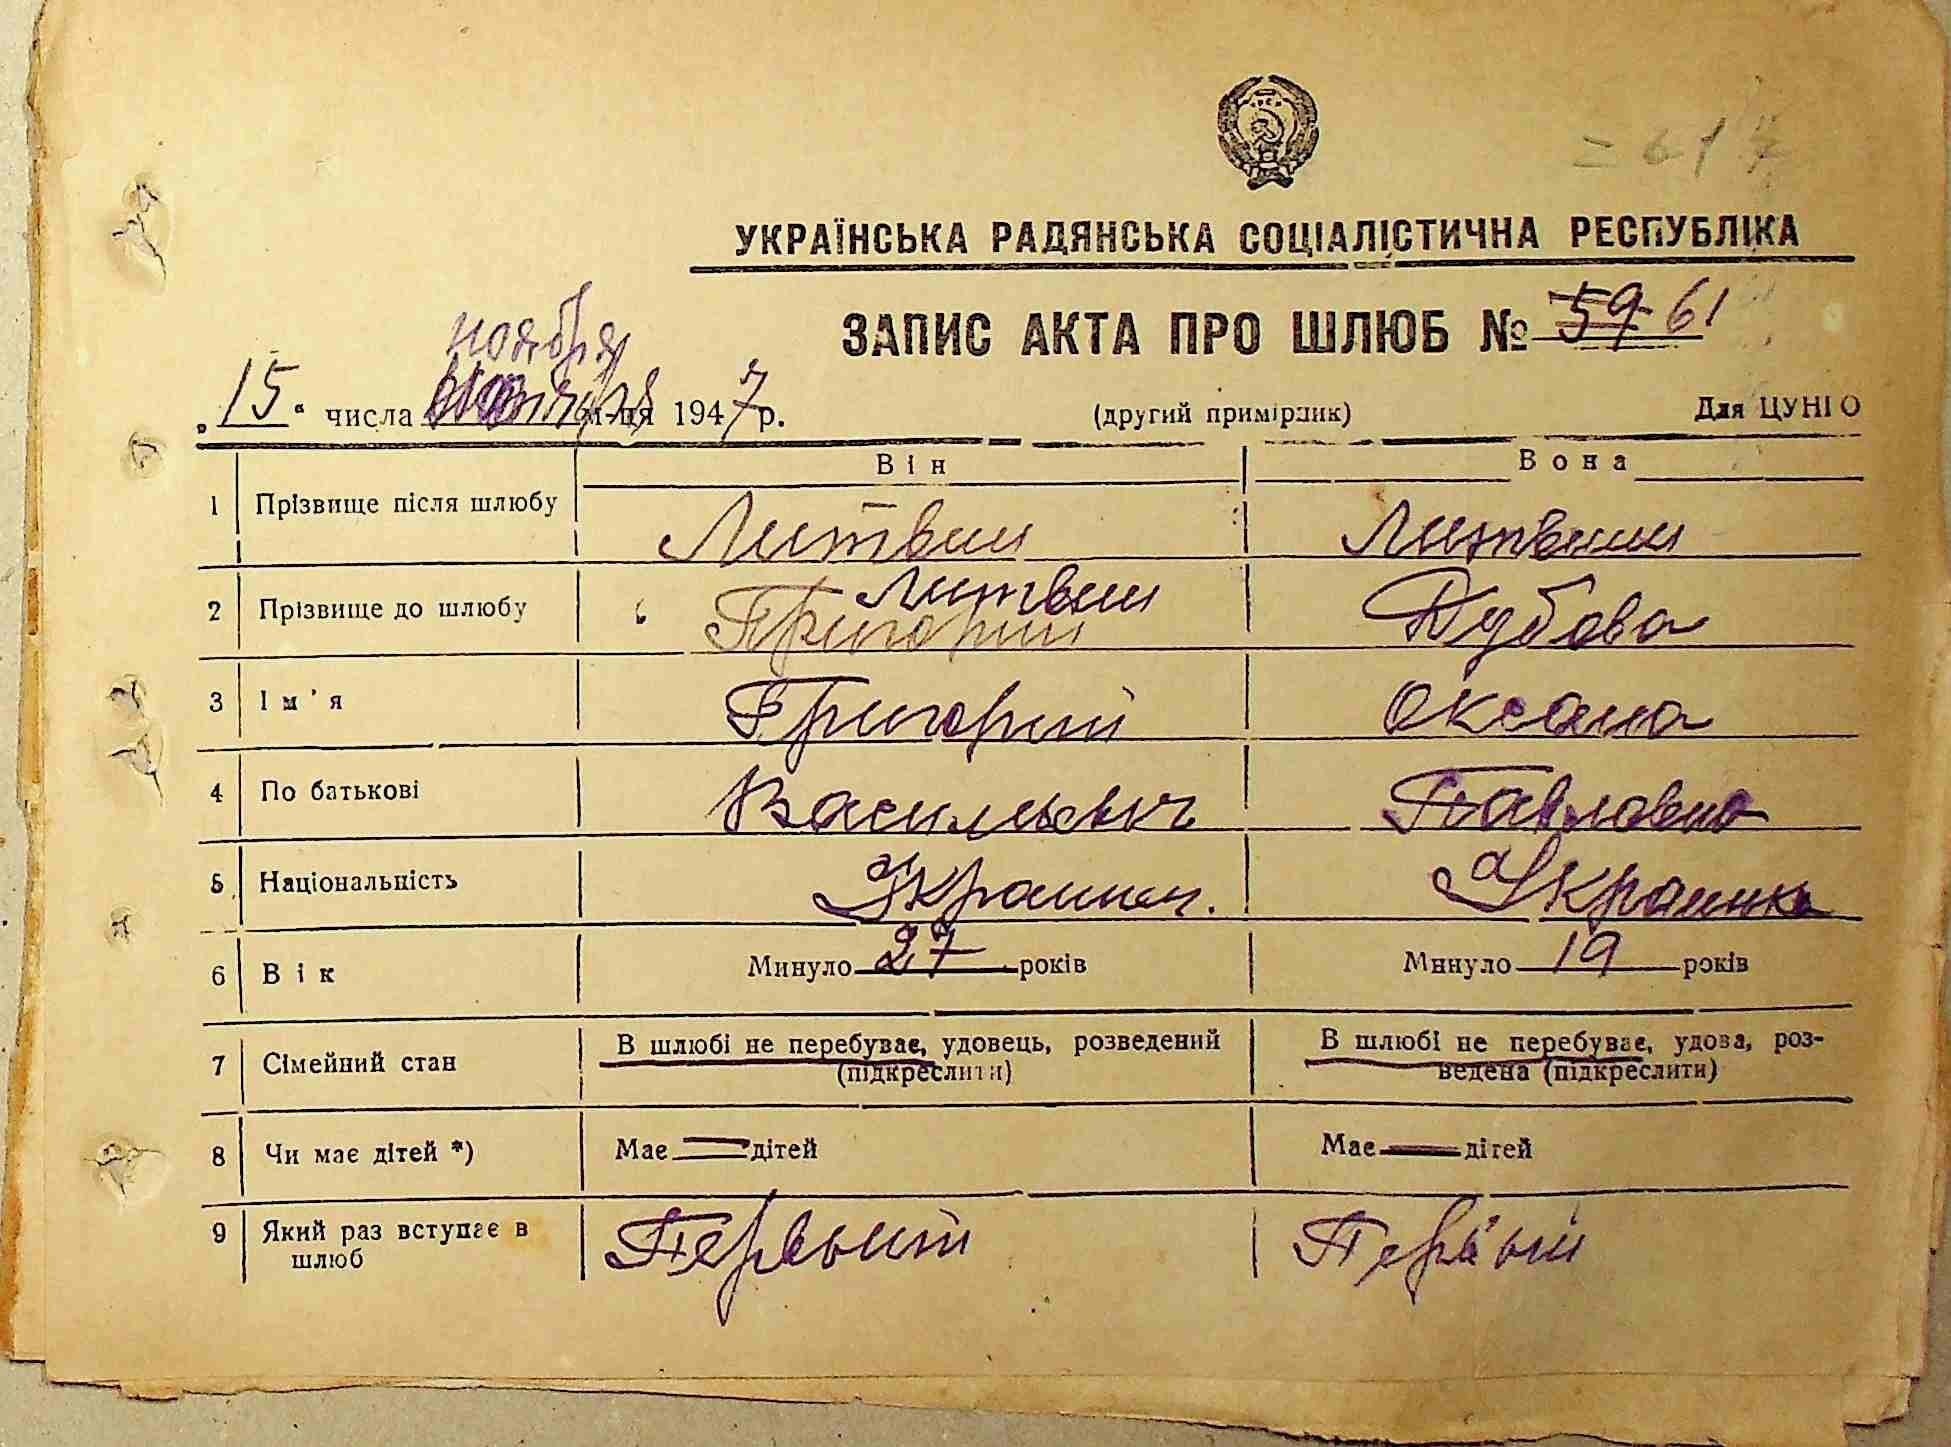 УКРАЇНСЬКА РАДЯНСЬКА СОЦІАЛІСТИЧНА РЕСПУБЛІКА
ЗАПИС АКТА ПРО ШЛЮБ № 59 61
ноября
„15“ числа м-ця 1947 р. (другий примірник) Для ЦУНГО
Він Вона
1 Прізвище після шлюбу Литвин Литвин
2 Прізвище до шлюбу Литвин Григорий Дубова
3 Ім'я Григорий Оксана
4 По батькові Васильевич Павловна
5 Національність Украинец. Украинка
6 Вік Минуло 27 років Минуло 19 років
7 Сімейний стан В шлюбі не перебуває, удовець, розведений (підкреслити) В шлюбі не перебуває, удова, роз-
ведена (підкреслити)
8 Чи має дітей *) Має — дітей Має — дітей
9 Який раз вступає в шлюб Первый Первый